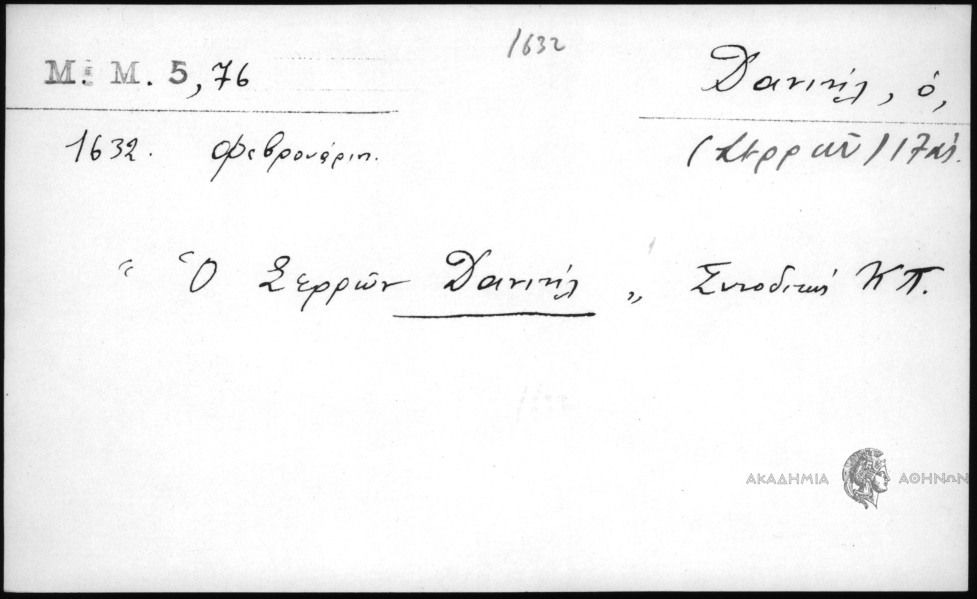 1632
Μ. Μ. 5,76
Δανιήλ, ὁ,
1632. Φεβρουάριος.
(Σερρῶν) 17 αἰ.
" Ὁ Σερρῶν Δανιήλ „ Συνοδικῶς ΚΠ.
1632
ΑΚΑΔΗΜΙΑ ΑΘΗΝΩΝ